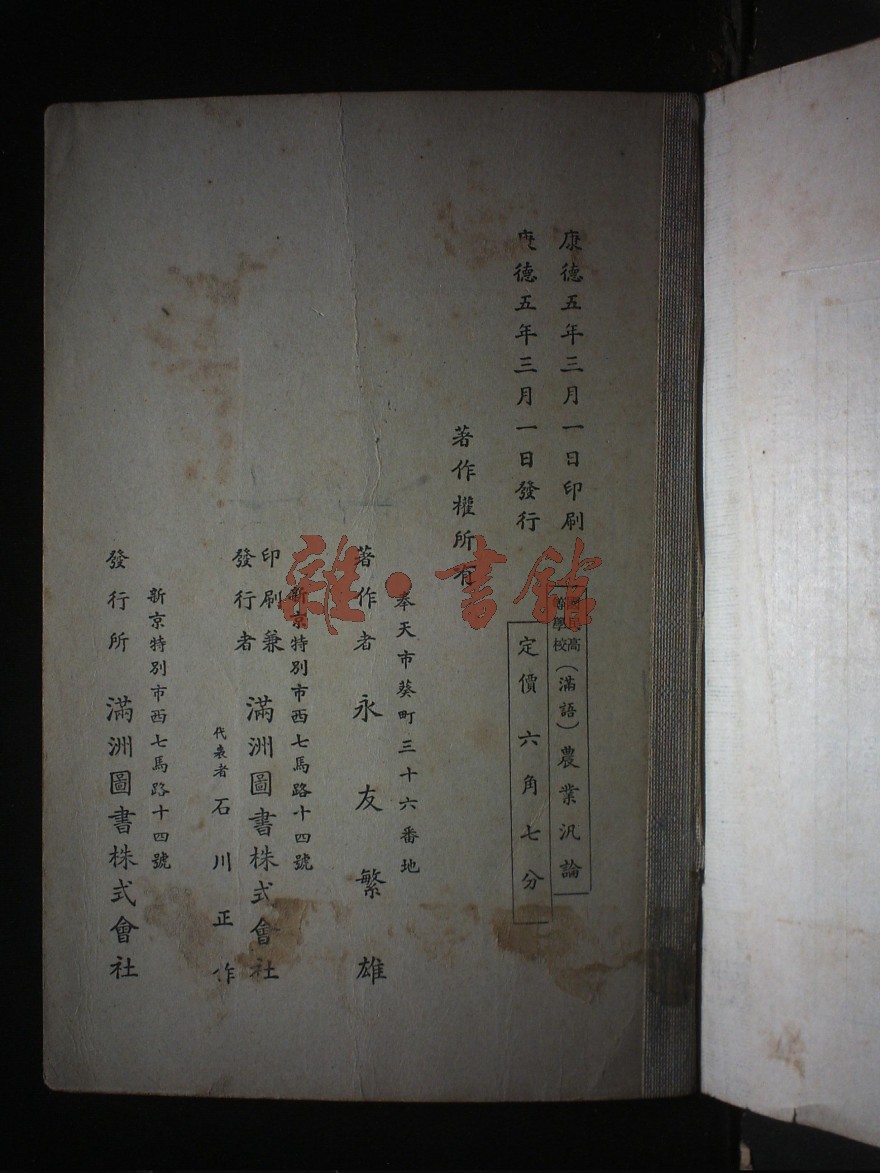 康德五年三月一日印刷
康德五年三月一日發行
國民高等學校（滿語）農業汎論
定價六角七分
著作權所有
奉天市葵町三十六番地
著作者 永友繁雄
新京特別市西七馬路十四號
印刷兼發行者 滿洲圖書株式會社
代表者 石川正作
新京特別市西七馬路十四號
發行所 滿洲圖書株式會社
雜·書館